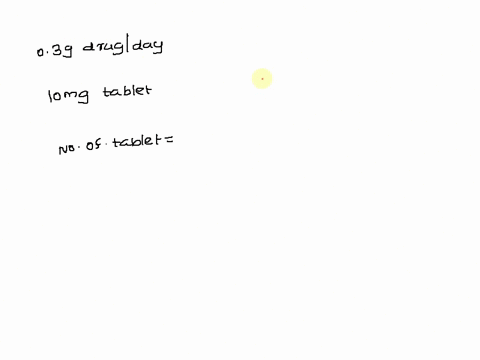 0.3g drug/day
10mg tablet
No. of. tablet=